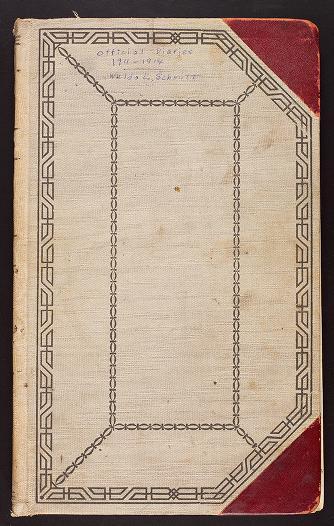 Official Diaries
1911-1914
Waldo L. Schmitt